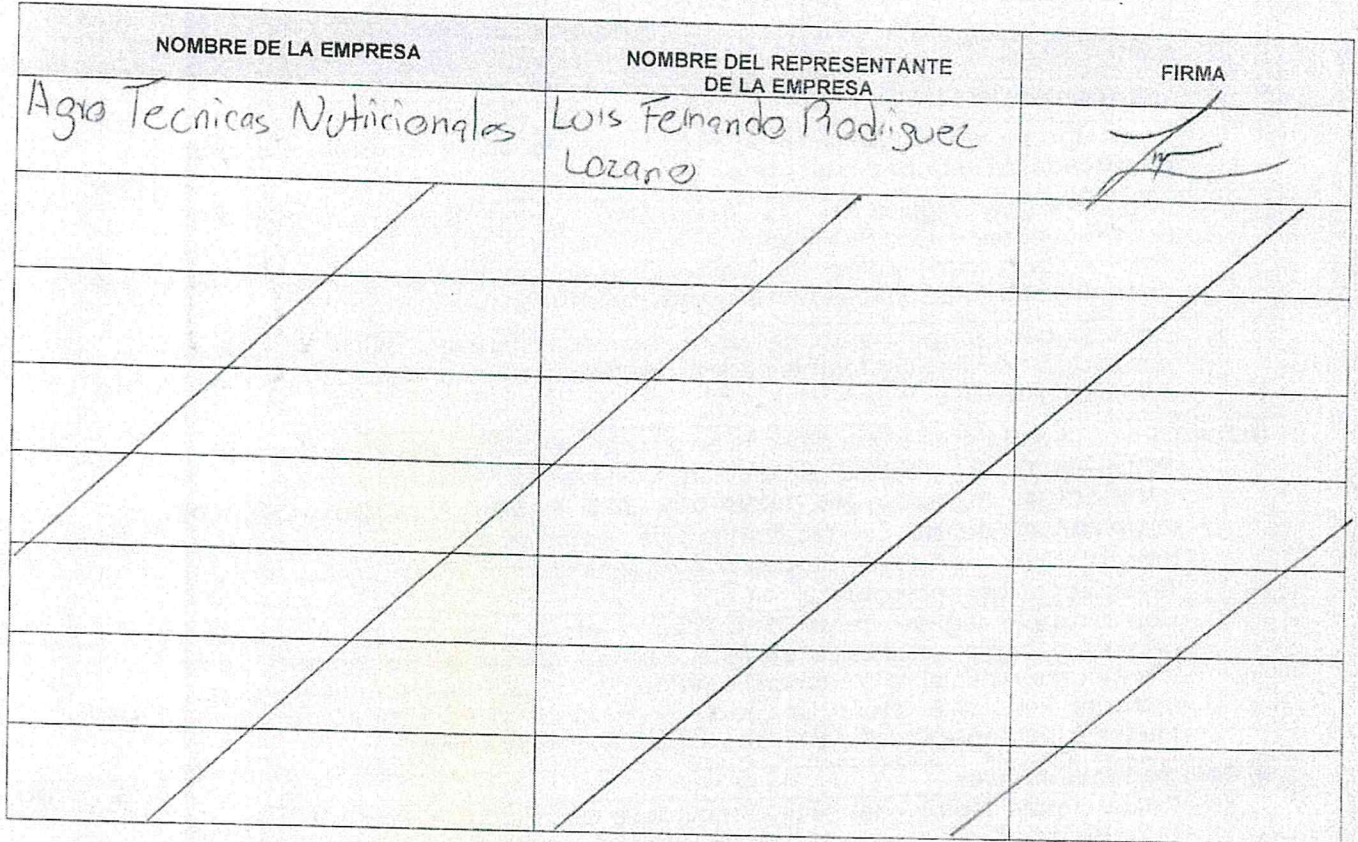 NOMBRE DE LA EMPRESA
NOMBRE DEL REPRESENTANTE
DE LA EMPRESA
FIRMA
Agro Tecnicas Nutricionales
Luis Fernando Rodriguez
Lozano